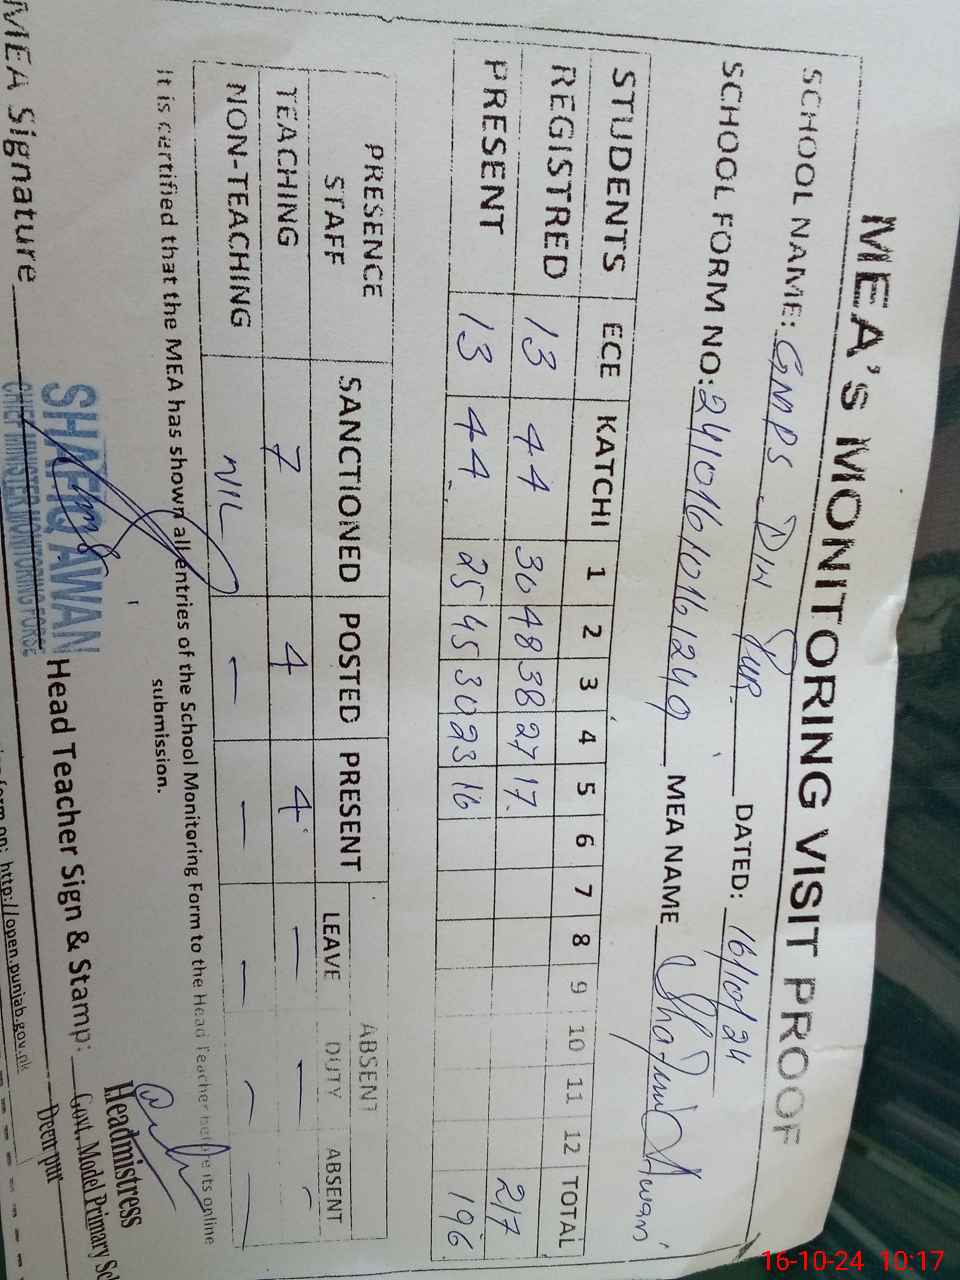 MEA's MONITORING VISIT PROOF
SCHOOL NAME: GMPS Din Pur DATED: 16/10/24
SCHOOL FORM NO: 24101610161249 MEA NAME Awan
STUDENTS ECE KATCHI 1 2 3 4 5 6 7 8 9 10 11 12 TOTAL
REGISTRED 13 44 30 48 38 27 17 217
PRESENT 13 44 25 45 30 23 16 196
PRESENCE STAFF SANCTIONED POSTED PRESENT ABSENT
LEAVE DUTY ABSENT
TEACHING 7 4 4 — — —
NON-TEACHING NIL — — — — —
It is certified that the MEA has shown all entries of the School Monitoring Form to the Head Teacher before its online
submission.
MEA Signature Head Teacher Sign & Stamp:
SHAFIQ AWAN
CHIEF MINISTER MONITORING FORCE
Headmistress
Govt. Model Primary
Deen pur
form on: http://open.punjab.gov.pk
16-10-24 10:17